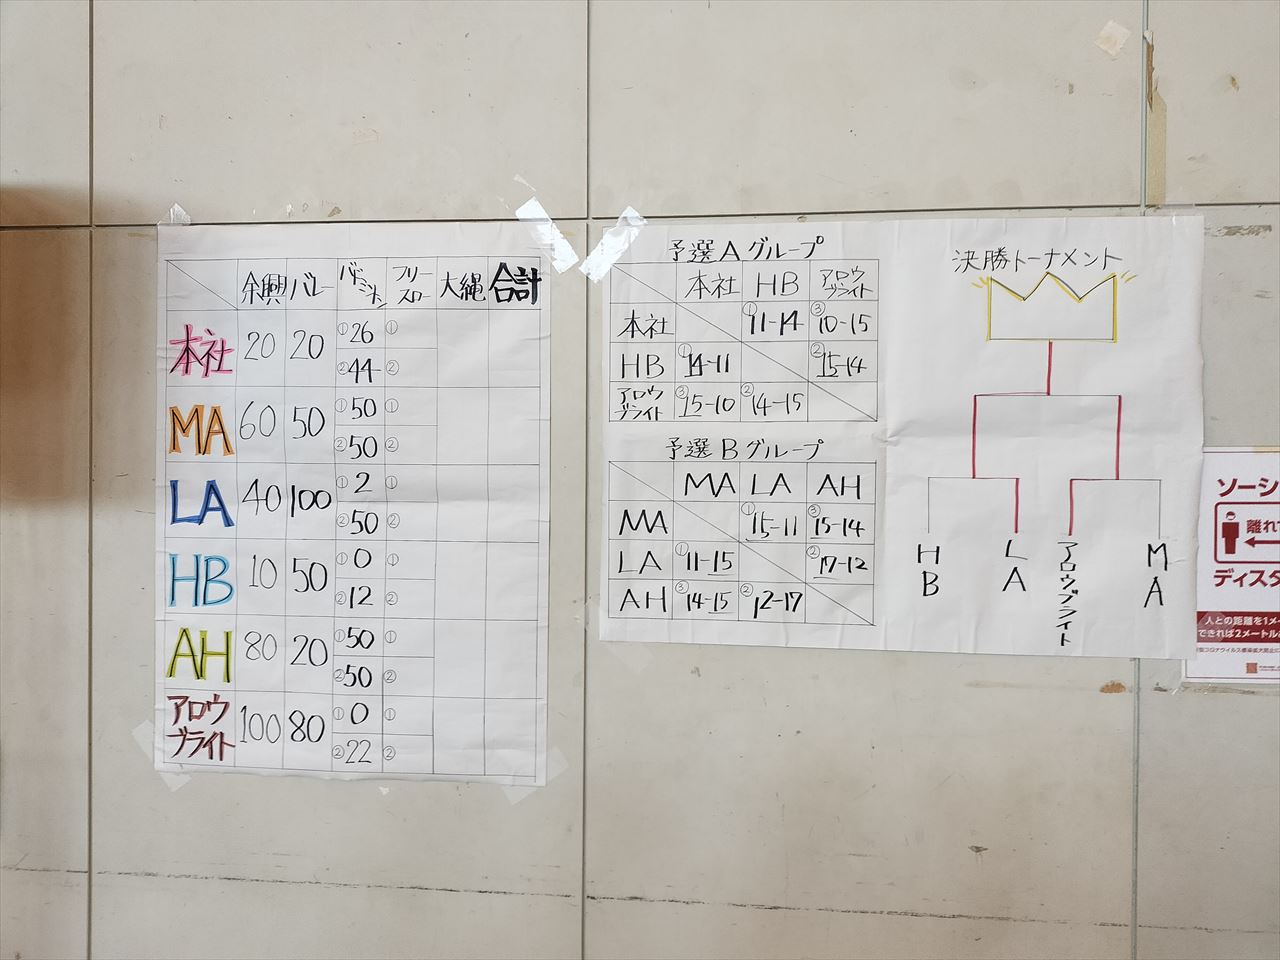 余興 バレー バドミントン フリースロー 大縄 合計
本社 20 20 ①26 ①
②44 ②
MA 60 50 ①50 ①
②50 ②
LA 40 100 ①2 ①
②50 ②
HB 10 50 ①0 ①
②12 ②
AH 80 20 ①50 ①
②50 ②
アロウブライト 100 80 ①0 ①
②22 ②
予選Aグループ
本社 HB アロウブライト
本社 ①11-14 ③10-15
HB ①14-11 ②15-14
アロウブライト ③15-10 ②14-15
予選Bグループ
MA LA AH
MA ①15-11 ③15-14
LA ①11-15 ②17-12
AH ③14-15 ②12-17
決勝トーナメント
HB LA アロウブライト MA
ソーシ
離れて
ディスタ
人との距離を1メー
できれば2メートル